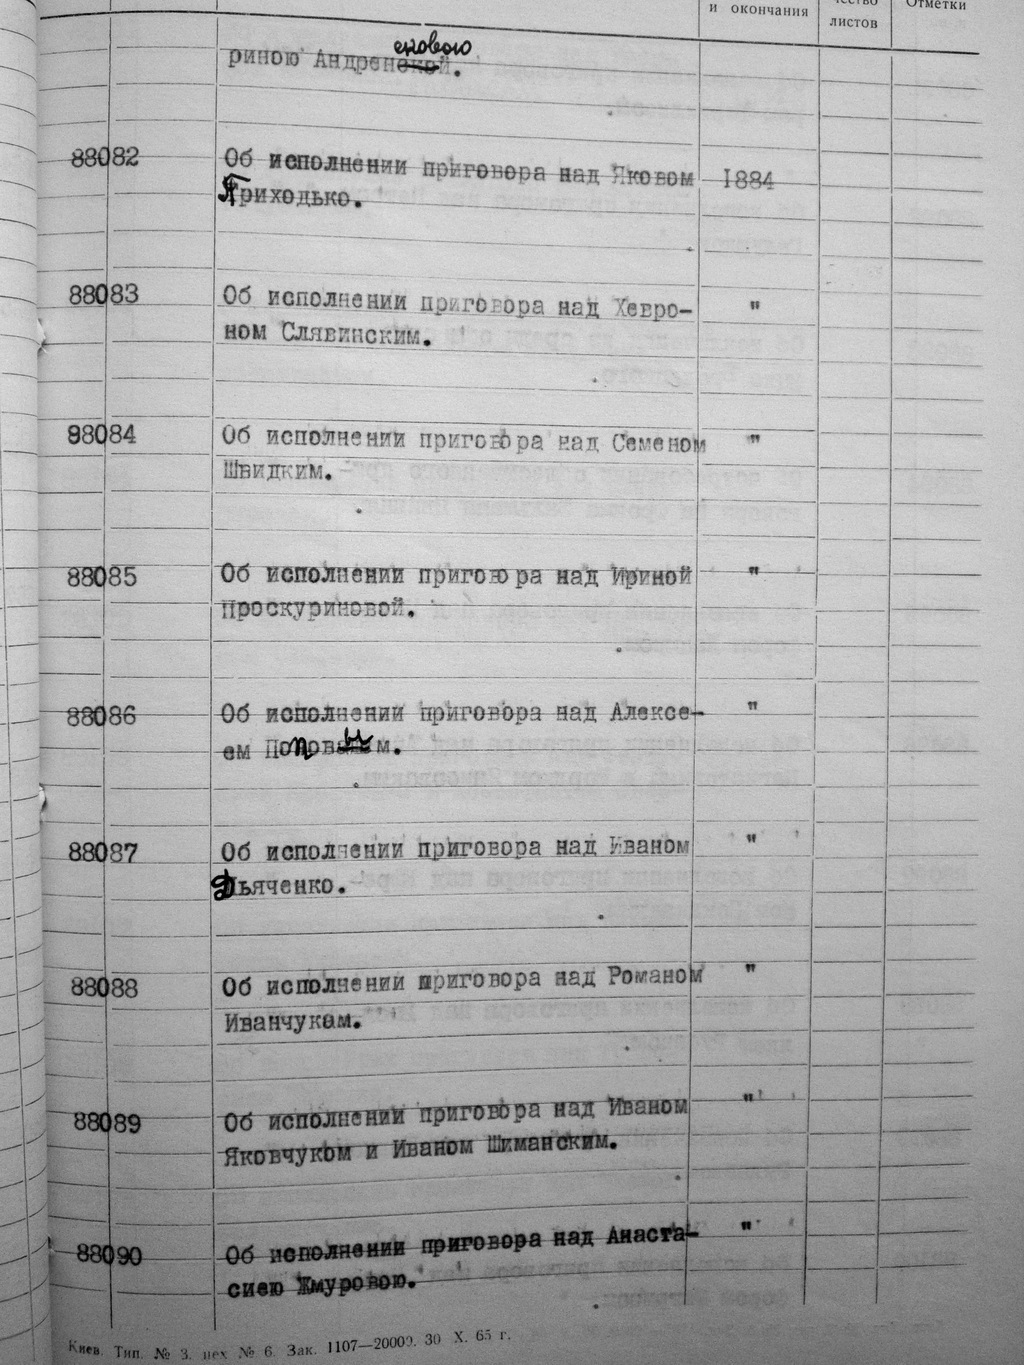 и окончания
чество
листов
Отметки
риною Андренсковою.
88082 Об исполнении приговора над Яковом 1884
Приходько.
88083 Об исполнении приговора над Хевро- "
ном Слявинским.
98084 Об исполнении приговора над Семеном "
Швидким.
88085 Об исполнении приговора над Ириной "
Проскуриновой.
88086 Об исполнении приговора над Алексе- "
ем Поповым.
88087 Об исполнении приговора над Иваном "
Дьяченко.
88088 Об исполнении приговора над Романом "
Иванчукам.
88089 Об исполнении приговора над Иваном "
Яковчуком и Иваном Шиманским.
88090 Об исполнении приговора над Анаста- "
сиею Жмуровою.
Киев. Тип. № 3. цех № 6. Зак. 1107—20000. 30 X. 65 г.